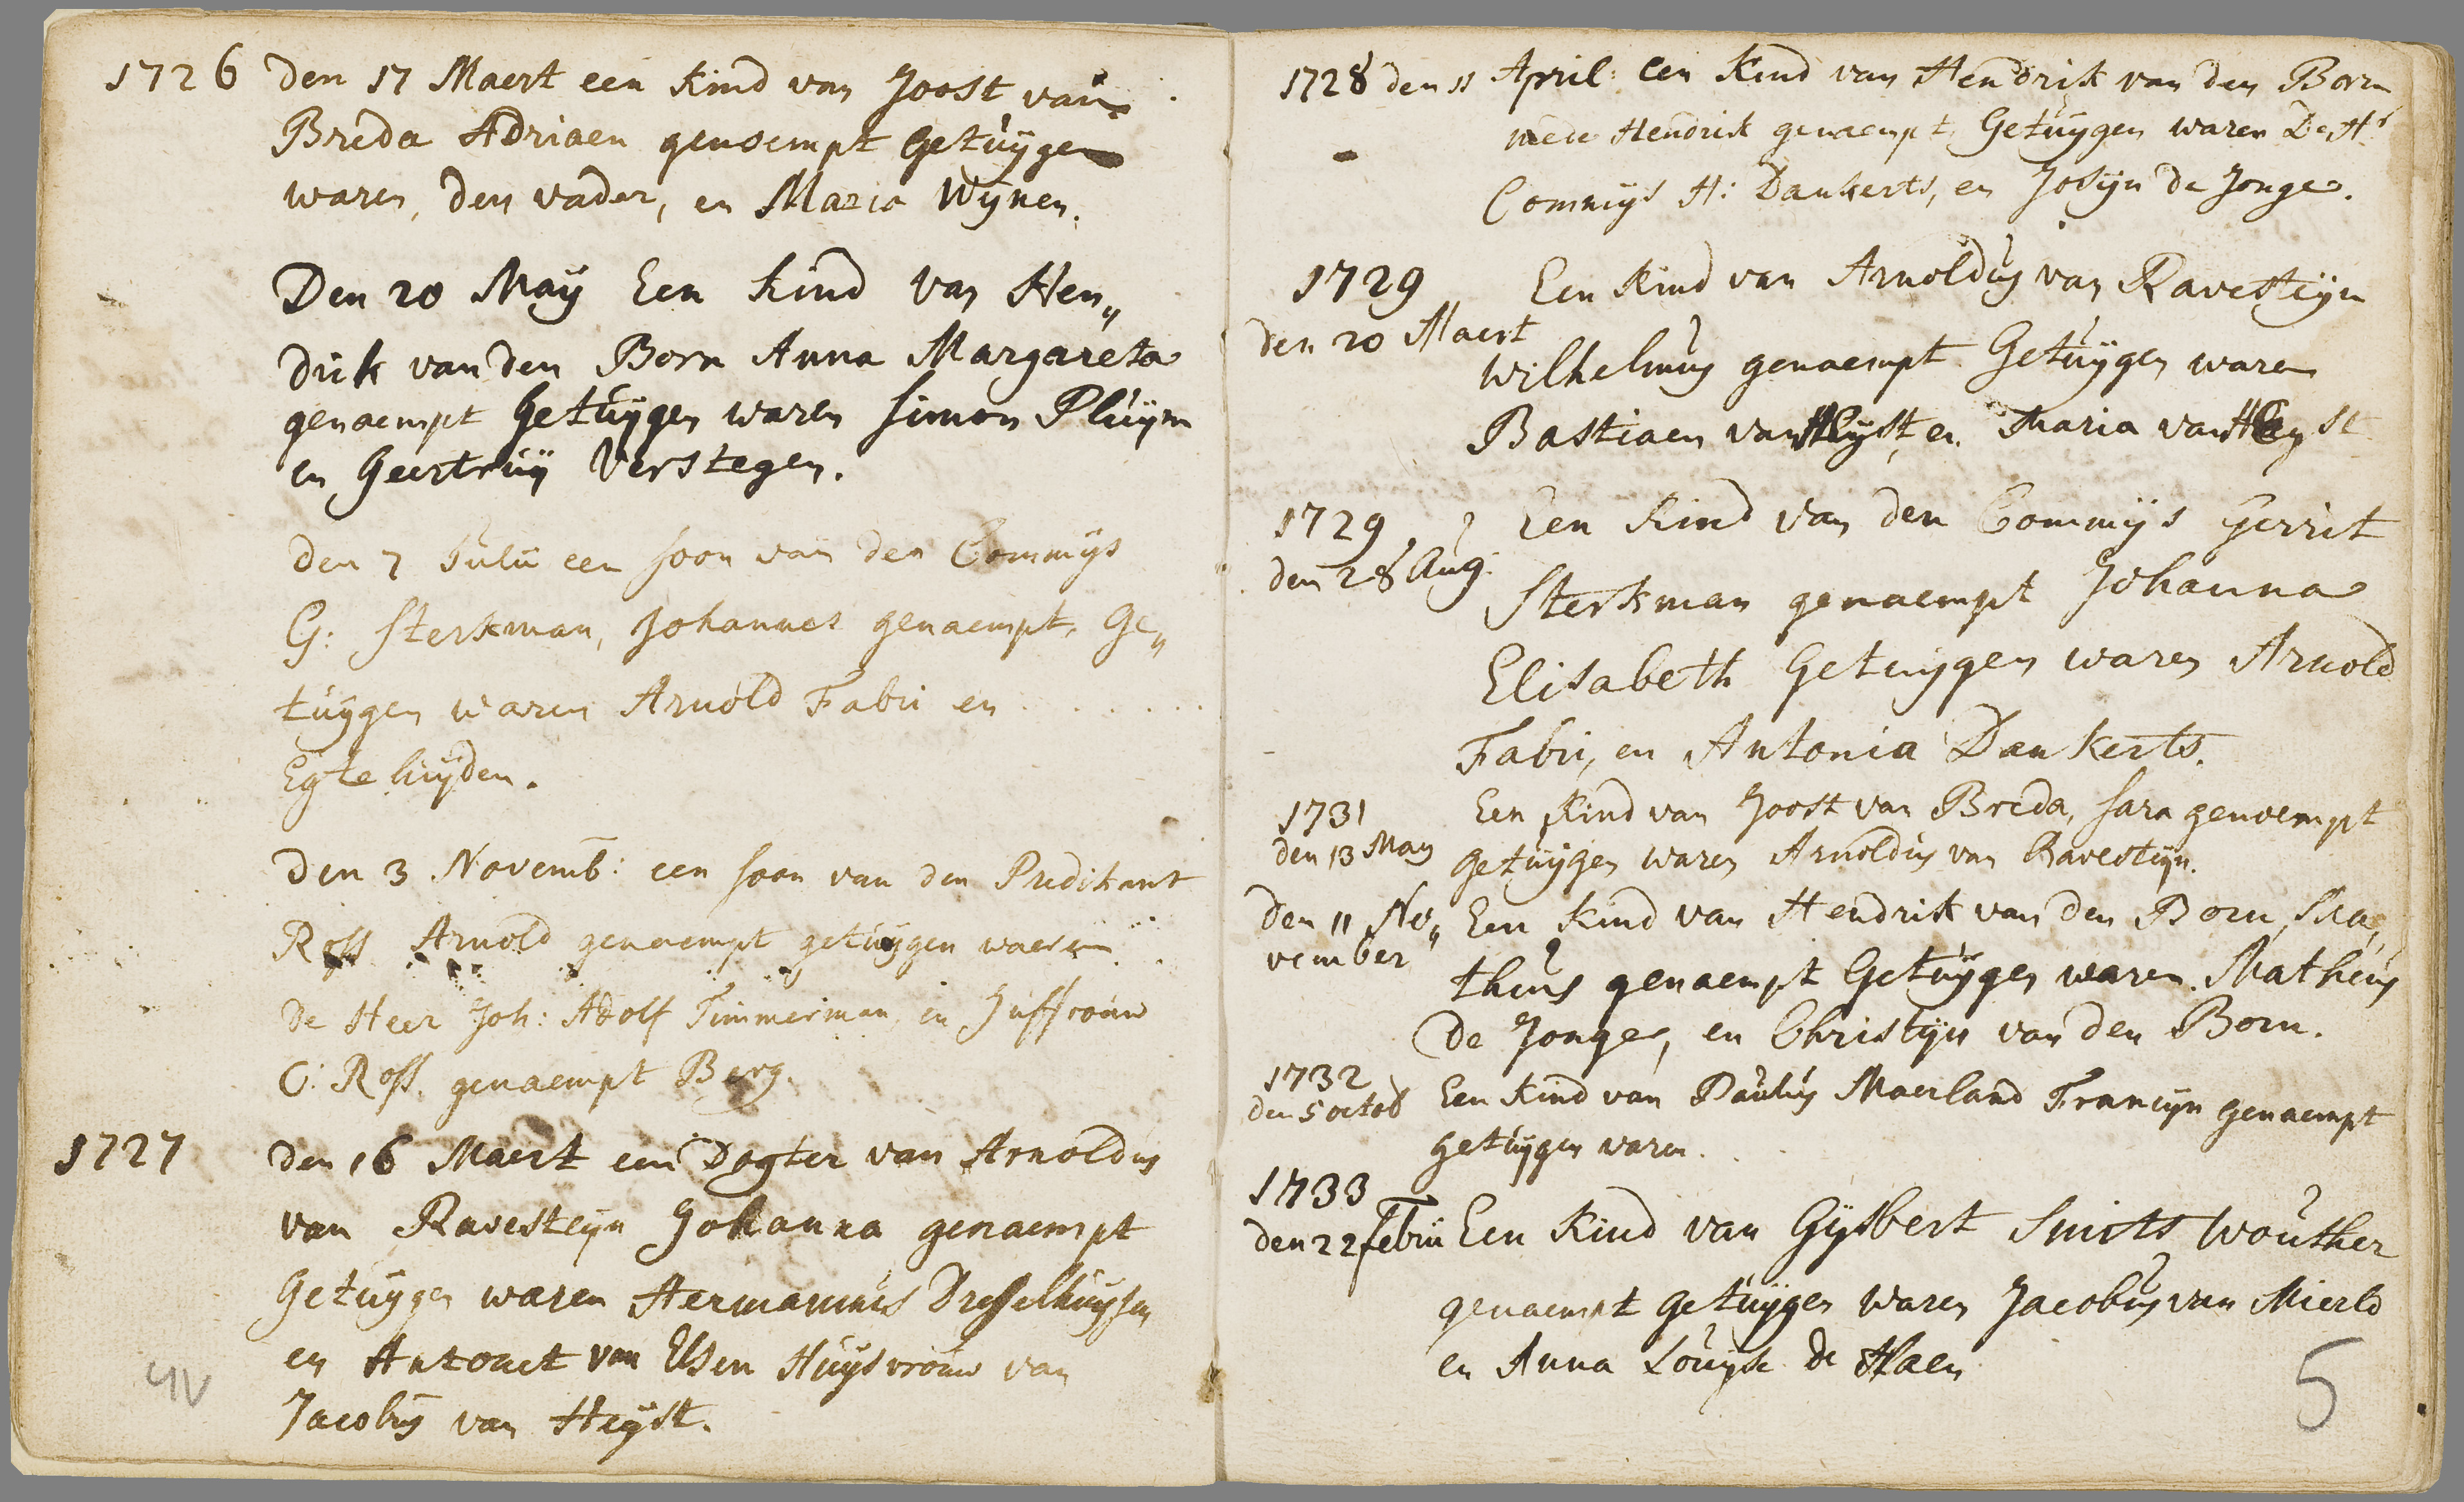 1726 den 17 Maert een kind van Joost van
Breda Adriaen genaempt Getuÿgen
waren, den vader, en Maria Wÿnen.
Den 20 Maÿ Een kind van Hen„
drik van den Born Anna Margareta
genaempt Getuÿgen waren Simon Pluÿm
en Geertruÿ Verstegen.
den 7 Julii een soon van den Commÿs
G: Sterkman, Johannes genaempt, Ge„
tuÿgen waren Arnold Fabri en . . . . . .
Egte luÿden.
den 3 Novemb: een soon van den Predikant
Ross Arnold genaempt getuÿgen waeren
de Heer Joh: Adolf Timmerman en Juffrouw
C: Ross. genaempt Berg.
1727 den 16 Maert een Dogter van Arnoldus
van Ravesteÿn Johanna genaempt
Getuÿgen waren Hermannus Dresselhuÿsen
en Antonet van Elsen Huÿsvrouw van
Jacobus van Heÿst.
4V
1728 den 11 April: een Kind van Hendrik van den Born
mede Hendrik genaempt, Getuÿgen waren De Hr
Commÿs H: Dankerts, en Josÿn de Jonge.
1729 Een Kind van Arnoldus van Ravesteÿn
den 20 Maert
Wilhelmus genaempt Getuÿgen waren
Bastiaen van Heÿst, en Maria van Heyst
1729 Een Kind van den Commÿs Gerrit
den 28 Aug:
Sterkman genaempt Johanna
Elisabeth Getuÿgen waren Arnold
Fabri, en Antonia Dankerts.
1731 Een Kind van Joost van Breda, Sara genaempt
den 13 May getuÿgen waren Arnoldus van Ravesteÿn.
den 11 No„ Een Kind van Hendrik van den Born, Ma„
vember
theus genaempt Getuÿgen waren Matheus
de Jonge, en Christÿn van den Born.
1732
den 5 octob Een Kind van Paulus Maerland Francÿn genaempt
getuÿgen waren . . .
1733
den 22 Febrii Een Kind van Gÿsbert Smits Wouther
genaempt getuÿgen waren Jacobus van Mierlo
en Anna Louÿse de Haen
5